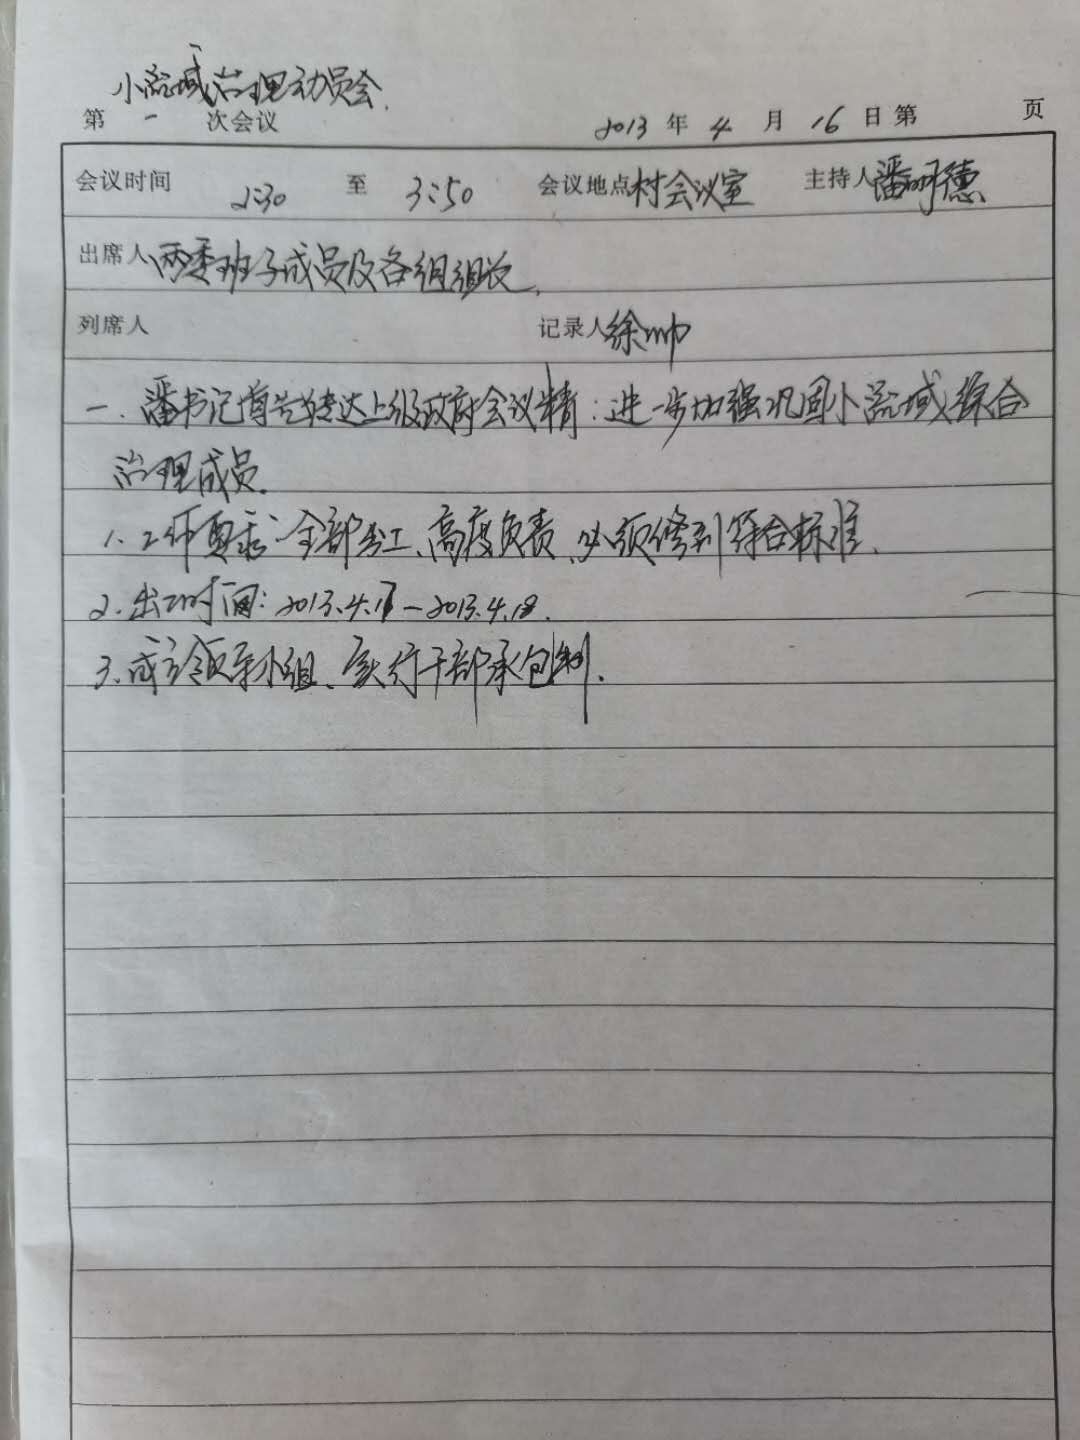 小流域治理动员会.
第 一 次会议 2013 年 4 月 16 日 第 页
会议时间 2:30 至 3:50 会议地点 村会议室 主持人 潘明德
出席人 两委班子成员及各组组长.
列席人 记录人 徐帅
一.潘书记首先转达上级政府会议精:进一步加强巩固小流域综合
治理成员.
1.工作要求:全部出工、高度负责、必须修到符合标准.
2.出工时间:2013.4.17—2013.4.18.
3.成立领导小组、实行干部承包制.